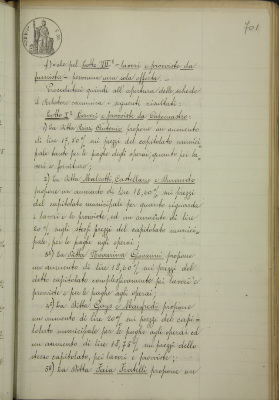 701
f) e le pel Lotto VII° - lavori e provviste da
fumista - pervenne una sola offerta.
Proceduto quindi all'apertura delle schede
si ottennero i seguenti risultati:
Lotto I° Lavori e provviste da Capomastro:
1) La Ditta Antonio propone un aumento
di lire 17,50 % sui prezzi del capitolato munici-
pale tanto per le paghe degli operai, quanto pei la-
vori e forniture;
2) La Ditta Castellano e
propone un aumento di lire 18,40 % sui prezzi
del capitolato municipale per quanto riguarda
i lavori e le provviste, ed un aumento di lire
20 % sugli stessi prezzi del capitolato munici-
pale, per le paghe agli operai;
3) La Ditta Giovanni propone
un aumento di lire % sui prezzi del
detto capitolato complessivamente pei lavori e
provviste e per le paghe agli operai;
4) La Ditta e Manfredi propone
un aumento di lire 20 % sui prezzi del capi-
tolato municipale per le paghe agli operai ed
un aumento di lire 18,75 % sui prezzi dello
stesso capitolato, pei lavori e provviste;
5) La Ditta Fratelli propone un